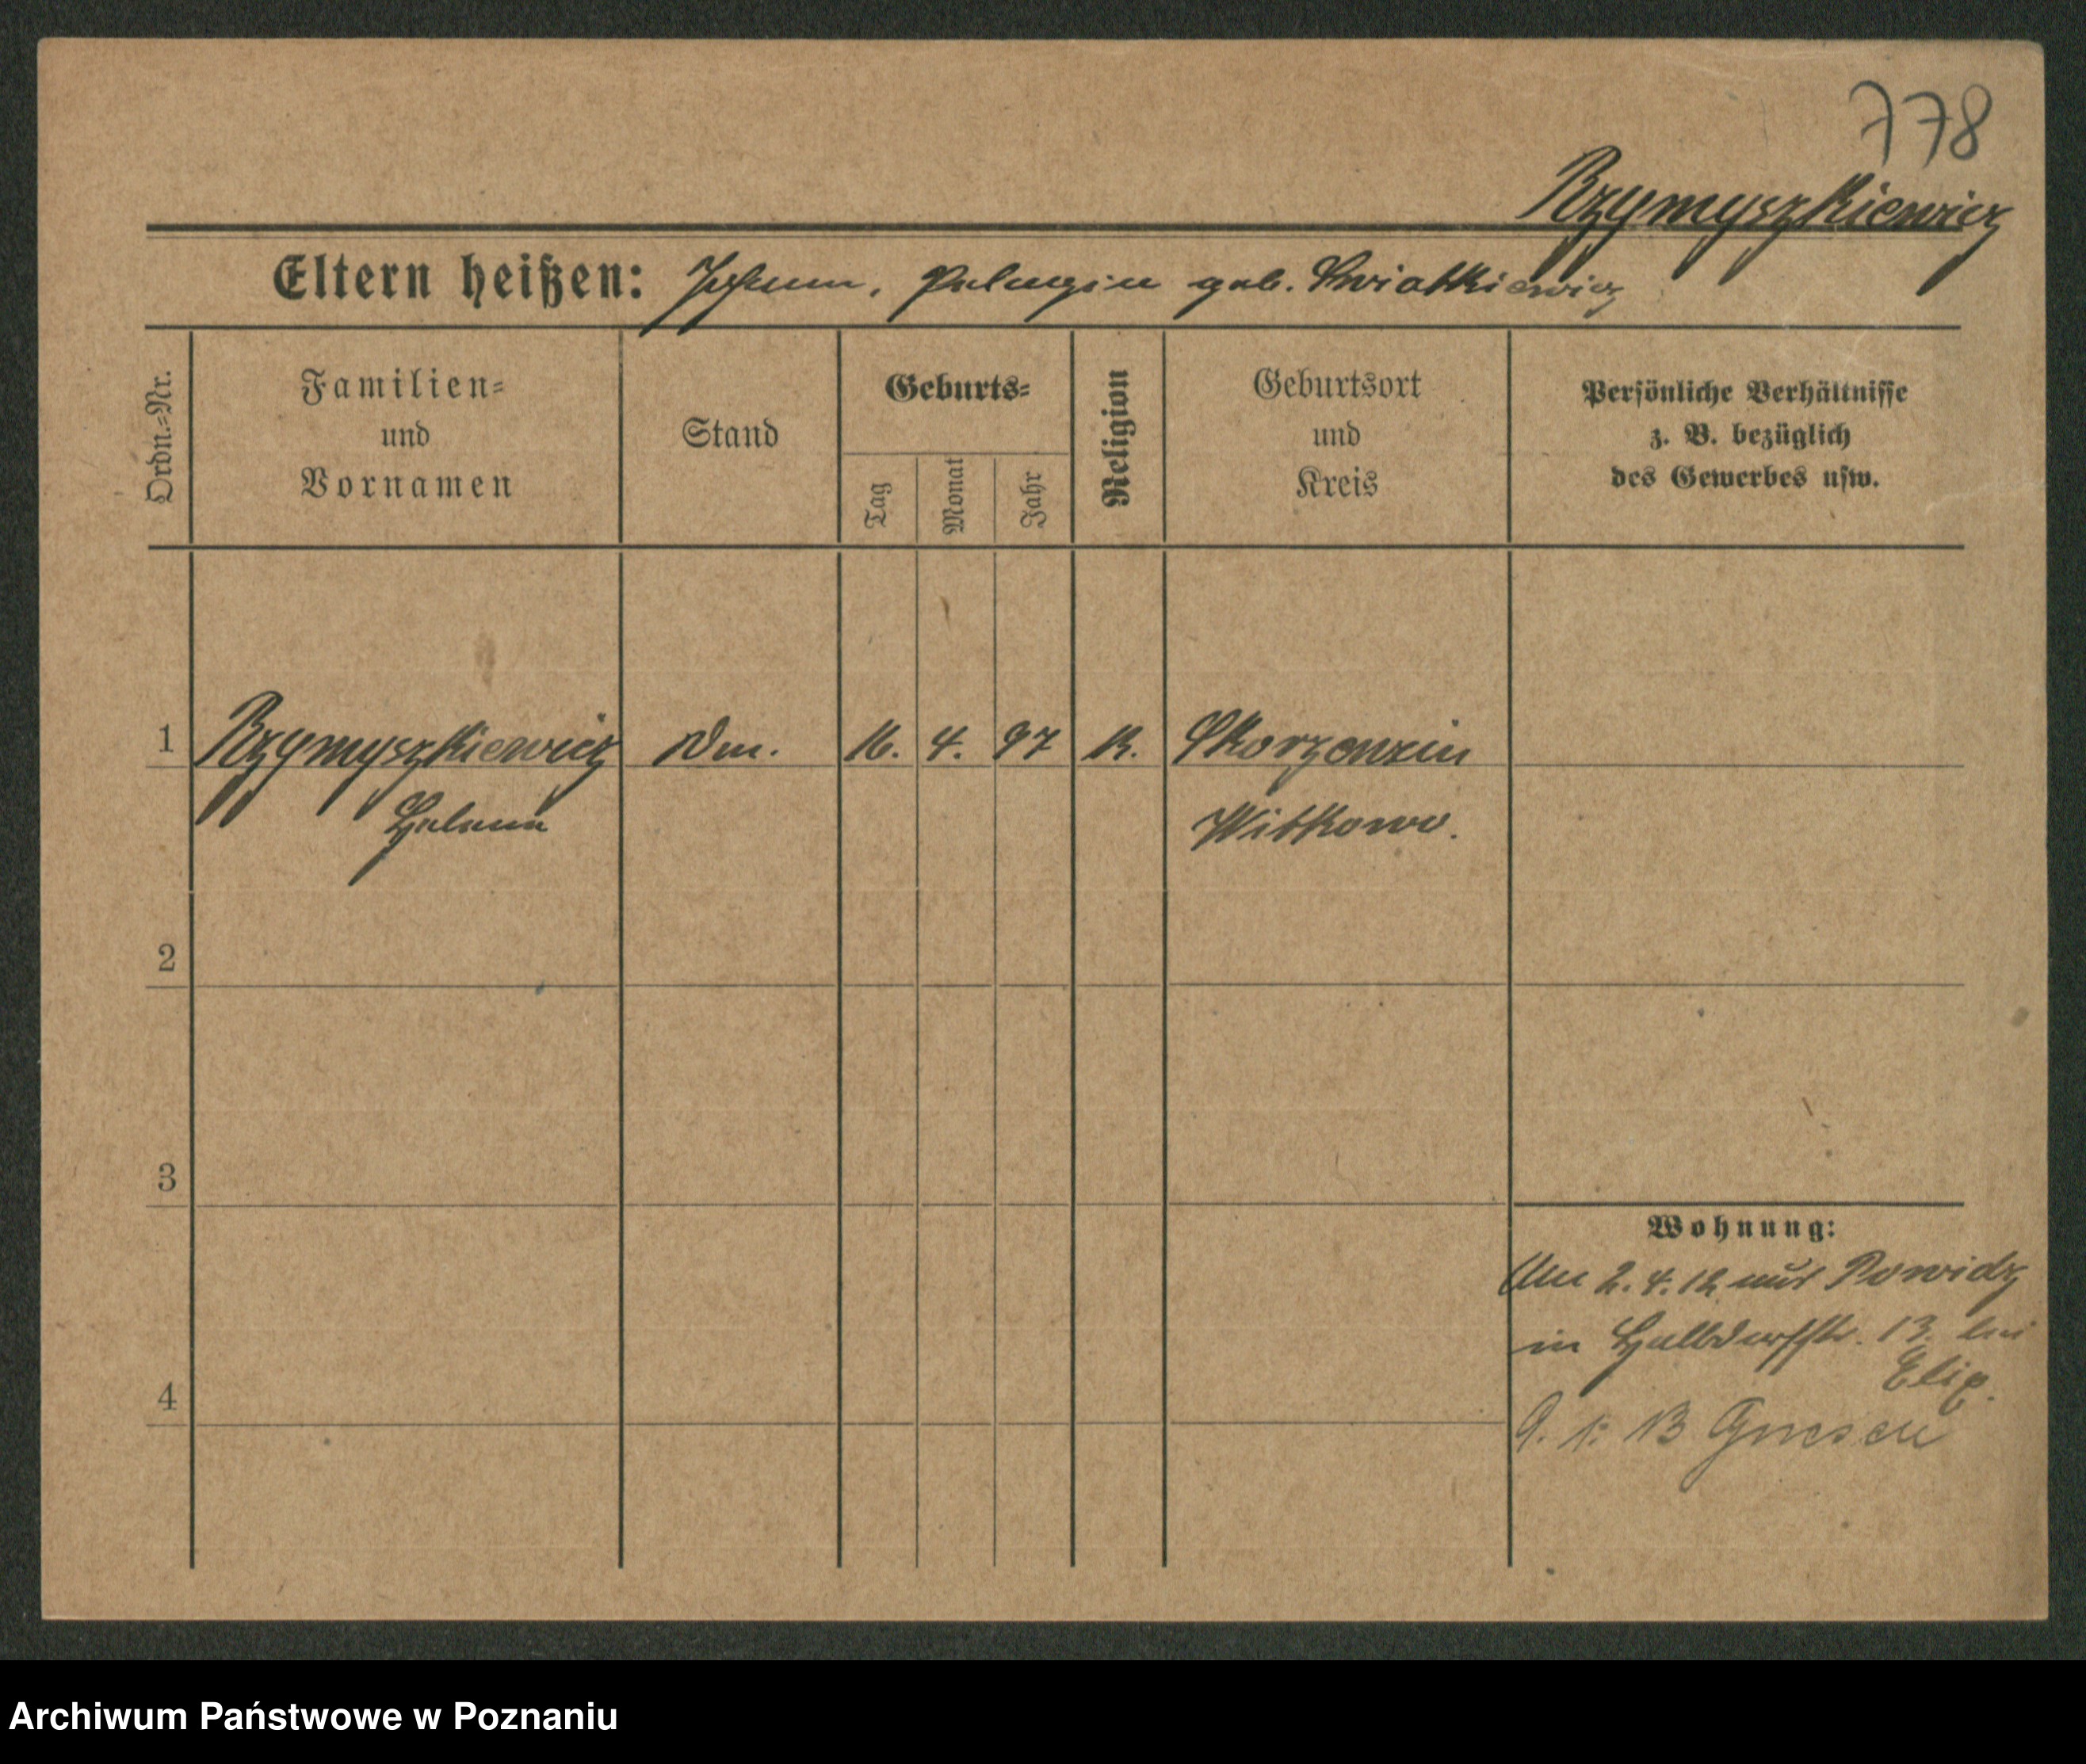 778
Rzymyszkiewicz
Eltern heißen: Johann, Pelagia geb. Swiatkiewicz
Ordn.=Nr.
Familien=
und
Vornamen
Stand
Geburts=
Tag
Monat
Jahr
Religion
Geburtsort
und
Kreis
Persönliche Verhältnisse
z. B. bezüglich
des Gewerbes usw.
1 Rzymyszkiewicz 16. 4. 97 K. Skorzencin
Helena Witkowo.
2
3
4
Wohnung:
Am 2. 4. 12 aus Powidz
in Halbdorfstr. 13. bei
9. 1. 13 Gnesen
Archiwum Państwowe w Poznaniu